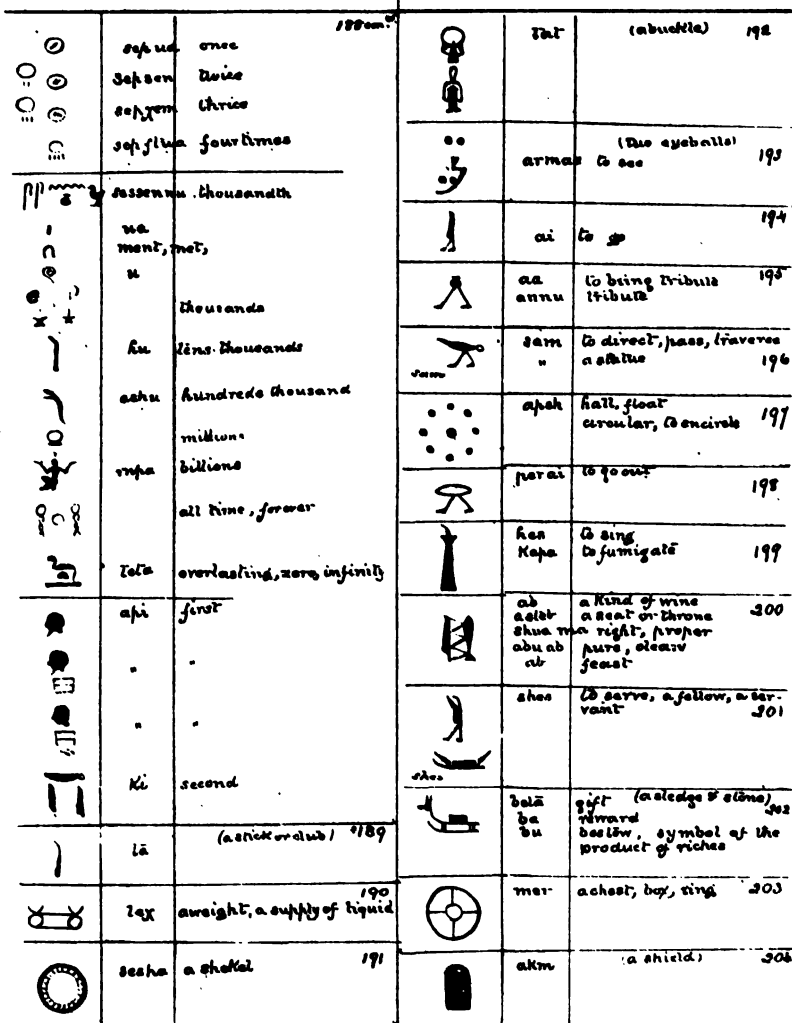 188 con.
sep ua once
sep sen twice
thrice
sep ftua four times
sessennu . thousandth
ua
ment, met,
u
thousands
hu tens. thousands
ashu hundreds thousand
millions
billions
all time, forever
teta everlasting, zero, infinity
api first
" "
" "
Ki second
tā (a stick or club) 189
190
tex a weight, a supply of liquid
sesha a shekel 191
tat (a buckle) 192
(two eyeballs)
armas to see 193
194
ai to go
aa to bring tribute 195
annu tribute
sam to direct, pass, traverse
" a statue 196
sam
apsh hall, float 197
circular, to encircle
perai to go out
198
hes to sing
Kapa to fumigate 199
ab a Kind of wine 200
a seat or throne
shua ma right, proper
abu ab pure, clean
ab feast
shes to serve, a fellow, a ser-
vant 201
shes
gift (a sledge & stone) 202
ba reward
bu bestow, symbol of the
product of riches
mer a chest, box, ring 203
akm (a shield)